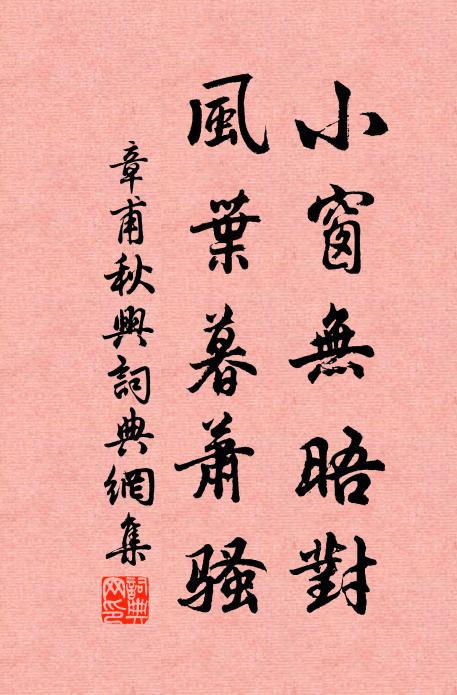 小窗無晤對
風葉暮蕭騷
章甫秋興詞典網集
詞典網印